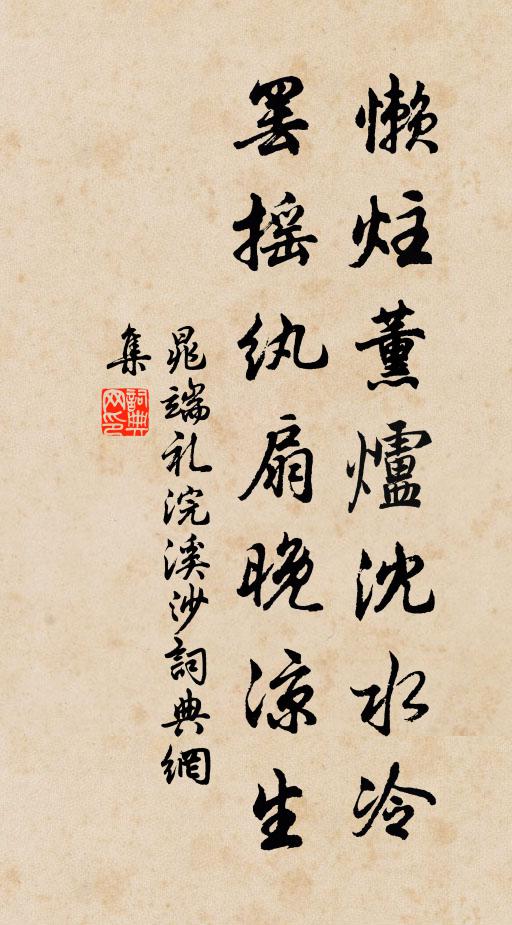 懒炷薰爐沈水冷
罢摇纨扇晚凉生
晁端礼浣溪沙詞典網
集
詞典
网印